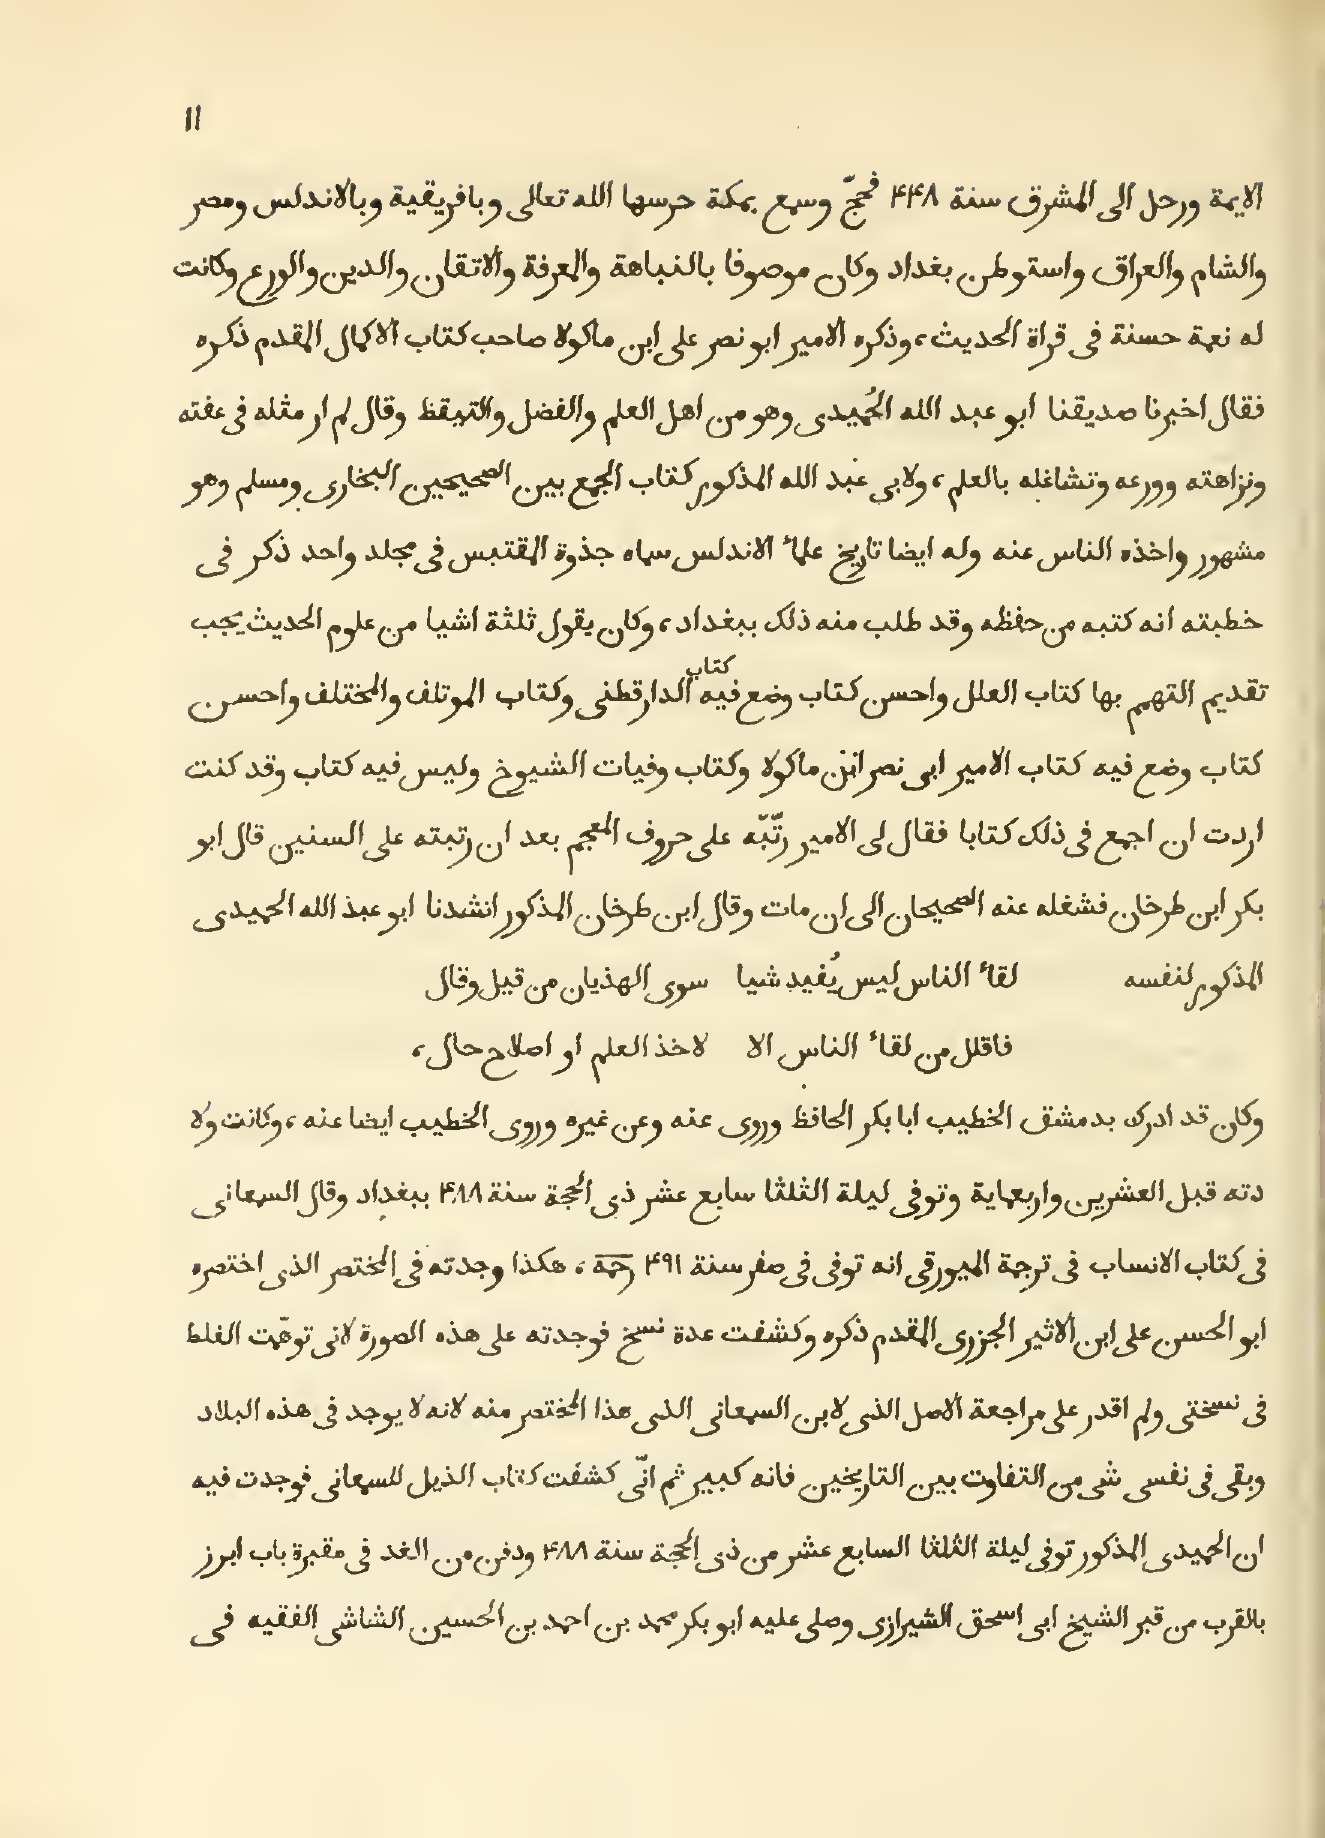 ١١
الايمة ورحل الى المشرق سنة ۴۴٨ فحجّ وسمع بمكة حرسها الله تعالى وبافريقية وبالاندلس ومصر
والشام والعراق واستوطن بغداد وكان موصوفا بالنباهة والمعرفة والاتقان والدين والورع وكانت
له نعمة حسنة فى قراة الحديث، وذكره الامير ابو نصر على ابن ماكولا صاحب كتاب الاكمال المقدم ذكره
فقال اخبرنا صديقنا ابو عبد الله الحُميدى وهو من اهل العلم والفضل والتيقظ وقال لم ار مثله فى عفته
ونزاهته وورعه وتشاغله بالعلم، ولابى عبد الله المذكور كتاب الجمع بين الصحيحين البخارى ومسلم وهو
مشهور واخذه الناس عنه وله ايضا تاريخ علماء الاندلس سماه جذوة المقتبس فى مجلد واحد ذكر فى
خطبته انه كتبه من حفظه وقد طلب منه ذلك ببغداد، وكان يقول ثلثة اشيا من علوم الحديث يجب
تقديم التهمم بها كتاب العلل واحسن كتاب وضع فيه كتاب الدارقطنى وكتاب الموتلف والمختلف واحسن
كتاب وضع فيه كتاب الامير ابى نصر ابن ماكولا وكتاب وفيات الشيوخ وليس فيه كتاب وقد كنت
اردت ان اجمع فى ذلك كتابا فقال لى الامير رتّبّه على حروف المعجم بعد ان رتبته على السنين قال ابو
بكر ابن طرخان فشغله عنه الصحيحان الى ان مات وقال ابن طرخان المذكور انشدنا ابو عبذ الله الحميدى
المذكور لنفسه لقاء الناس ليس يُفيد شيا سوى الهذيان من قيل وقال
فاقلل من لقاء الناس الا لاخذ العلم او اصلاح حال،
وكان قد ادرك بدمشق الخطيب ابا بكر الحافظ وروى عنه وعن غيره وروى الخطيب ايضا عنه، وكانت ولا
دته قبل العشرين واربعماية وتوفى ليلة الثلثا سابع عشر ذى الحجة سنة ۴٨٨ ببغداد وقال السمعانى
فى كتاب الانساب فى ترجمة الميورقى انه توفى فى صفر سنة ۴٩١ رحمه، هكذا وجدته فى المختصر الذى اختصره
ابو الحسن على ابن الاثير الجزرى المقدم ذكره وكشفت عدة نسخ فوجدته على هذه الصورة لانى توهّمت الغلط
فى نسختى ولم اقدر على مراجعة الاصل الذى لابن السمعانى الذى هذا المختصر منه لانه لا يوجد فى هذه البلاد
وبقى فى نفسى شى من التفاوت بين التاريخين فانه كبير ثم انّى كشفت كتاب الذيل للسمعانى فوجدت فيه
ان الحميدى المذكور توفى ليلة الثلثا السابع عشر من ذى الحجة سنة ۴٨٨ ودفن من الغد فى مقبرة باب ابرز
بالقرب من قبر الشيخ ابى اسحق الشيرازى وصلى عليه ابو بكر محمد بن احمد بن الحسين الشاشى الفقيه فى